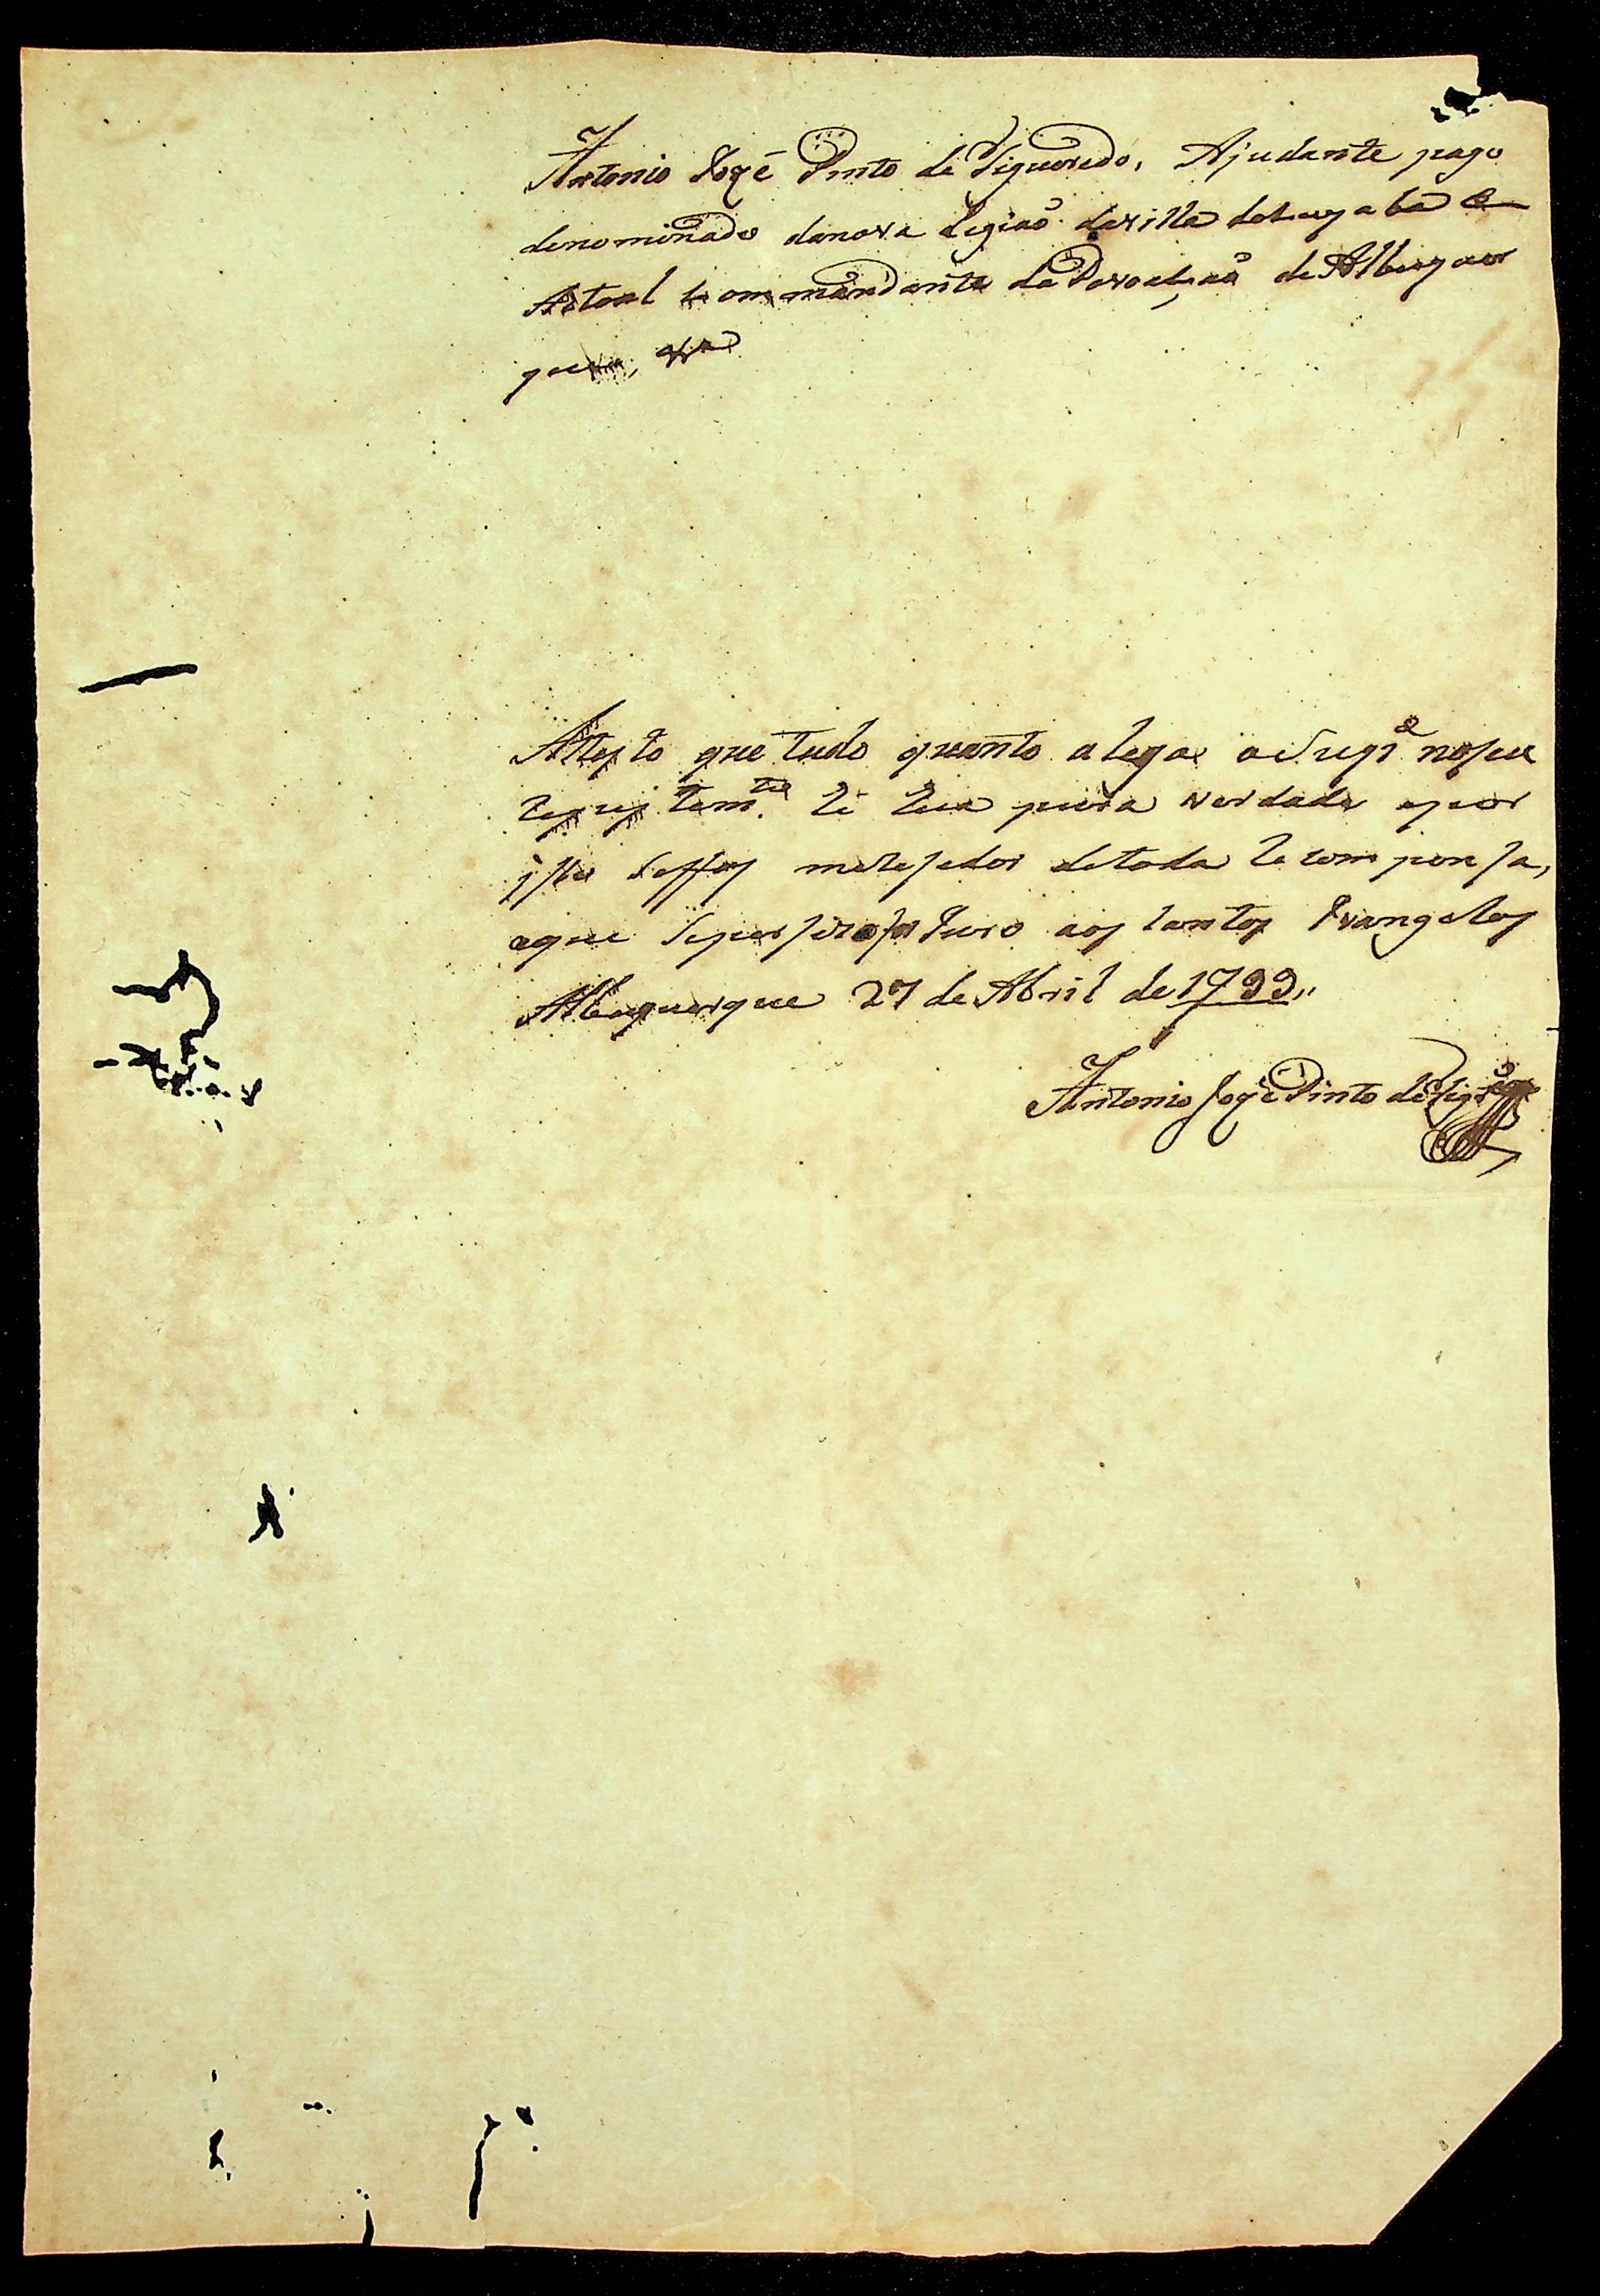 Antonio Joze Pinto de Figueiredo, Ajudante pago
denominado danova Legiaõ davilla doCuyabá e
Actoal Commandante da Povoaçaõ de Albuquer
que, 
Attesto que tudo quanto alega o Sup.e noseu
tem.to hé hua pura verdade epor
isso Sefas merecedor detoda Recompensa,
eque Seper Juro aos Santos Evangelhos
Albuquerque 27 de Abril de 1799,,
Antonio Joze Pinto de Fig.do